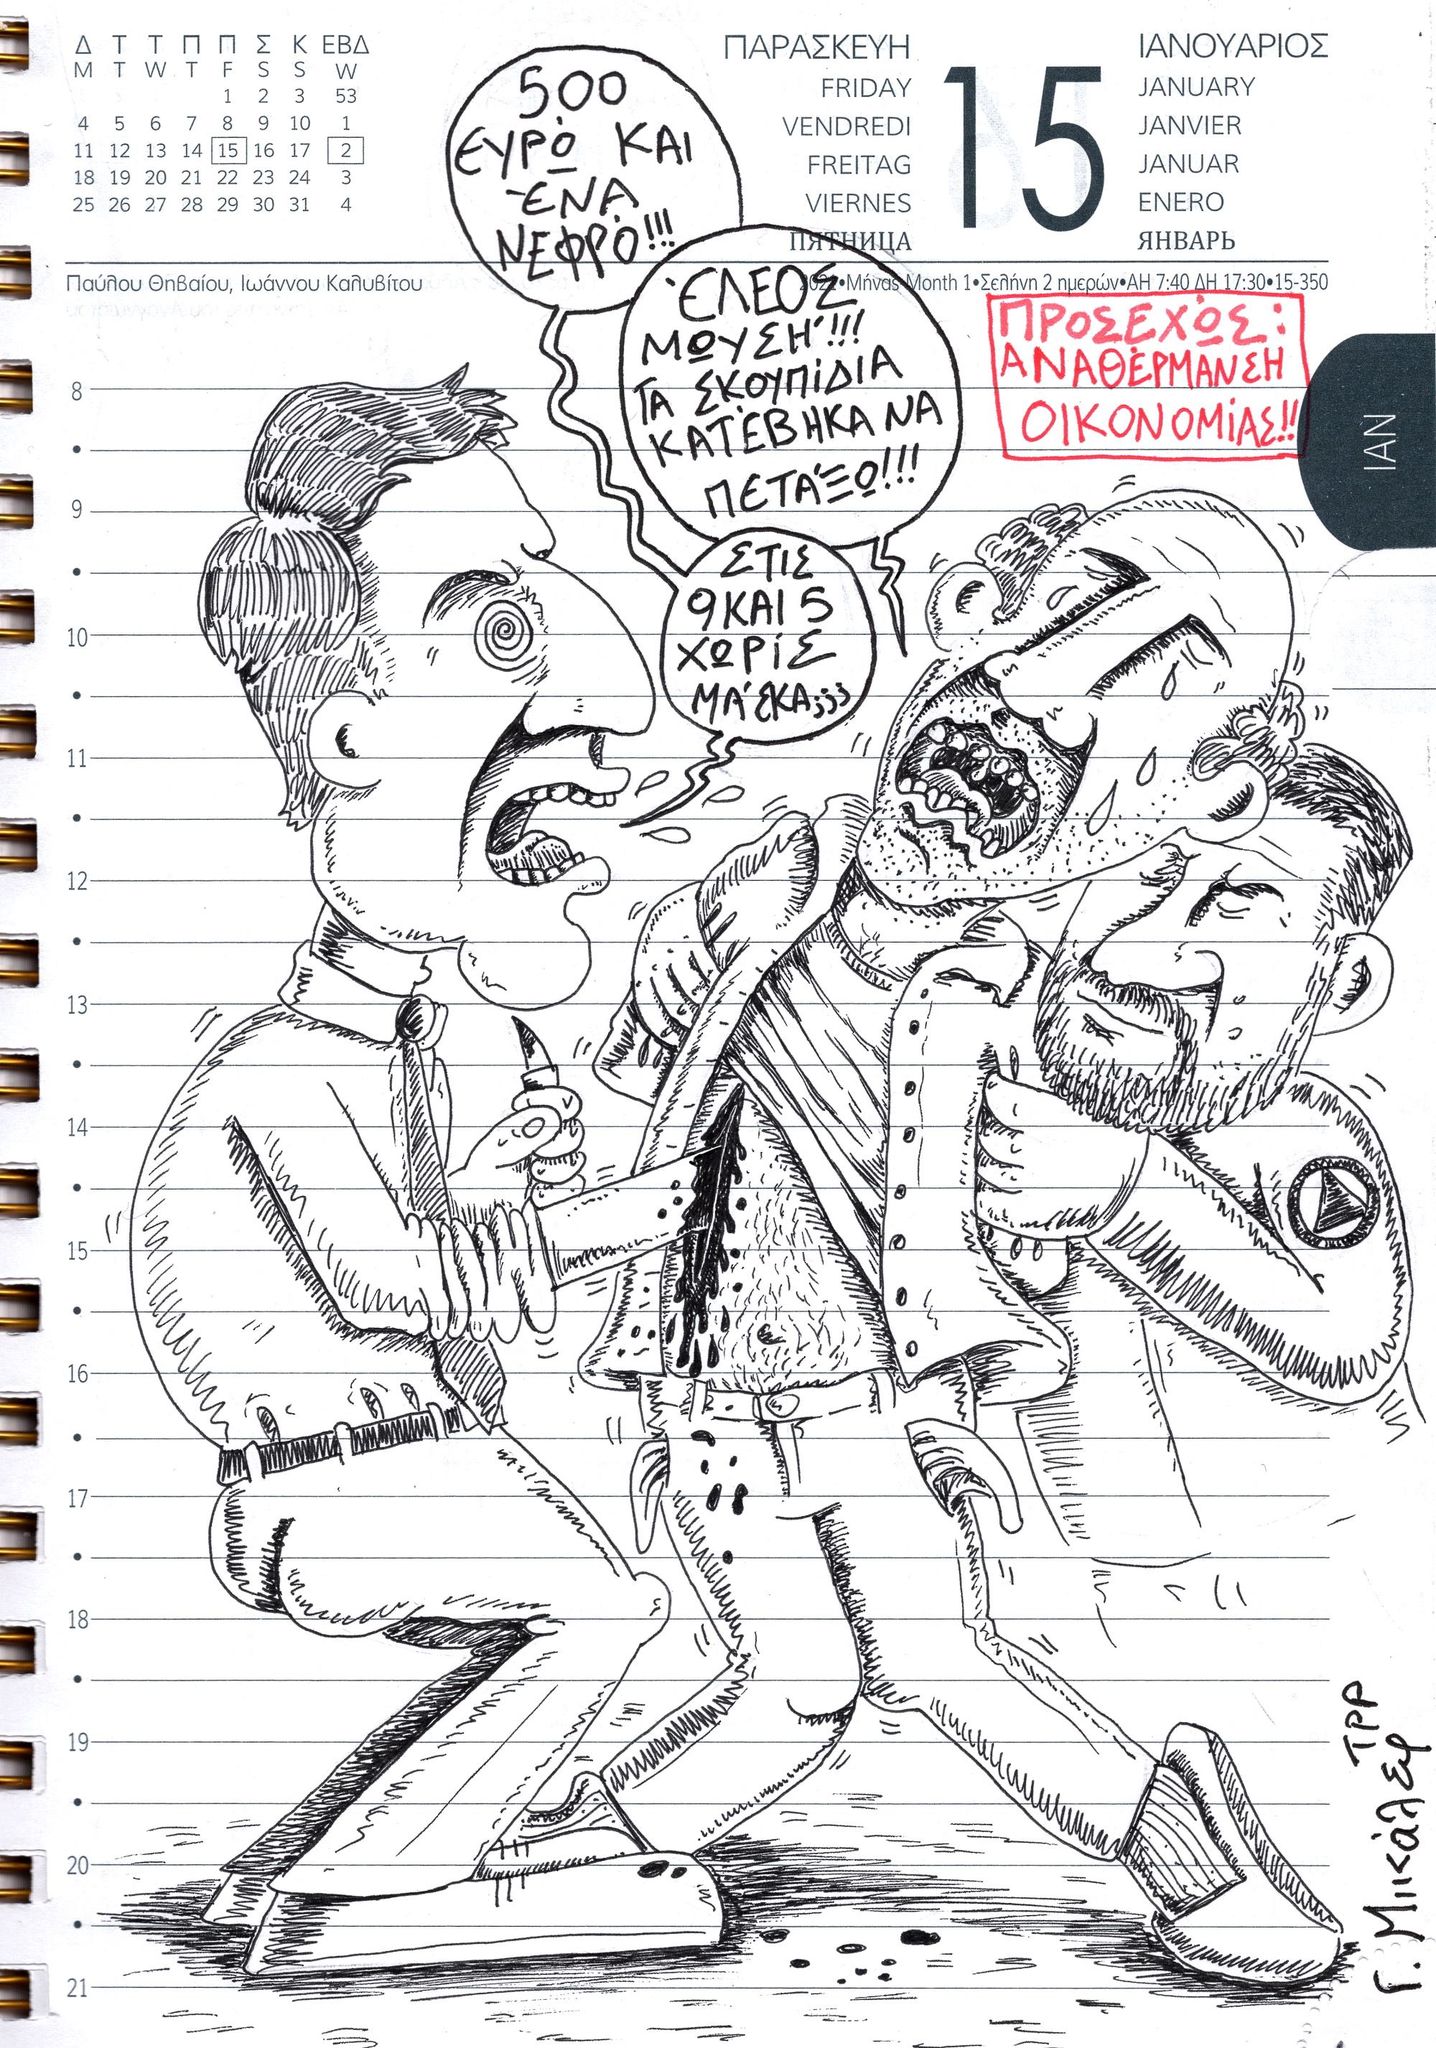 Δ Τ Τ Π Π Σ Κ ΕΒΔ
M T W T F S S W
1 2 3 53
4 5 6 7 8 9 10 1
11 12 13 14 15 16 17 2
18 19 20 21 22 23 24 3
25 26 27 28 29 30 31 4
ΠΑΡΑΣΚΕΥΗ
FRIDAY
VENDREDI
FREITAG
VIERNES
ПЯТНИЦА
15
ΙΑΝΟΥΑΡΙΟΣ
JANUARY
JANVIER
JANUAR
ENERO
ЯНВАРЬ
Παύλου Θηβαίου, Ιωάννου Καλυβίτου
2021•Μήνας Month 1•Σελήνη 2 ημερών•ΑΗ 7:40 ΔΗ 17:30•15-350
500
ΕΥΡΏ ΚΑΙ
ΈΝΑ
ΝΕΦΡΌ!!!
ΈΛΕΟΣ
ΜΩΥΣΉ!!!
ΤΑ ΣΚΟΥΠΊΔΙΑ
ΚΑΤΈΒΗΚΑ ΝΑ
ΠΕΤΆΞΩ!!!
ΣΤΙΣ
9 ΚΑΙ 5
ΧΩΡΊΣ
ΜΆΣΚΑ;;;
ΠΡΟΣΕΧΏΣ:
ΑΝΑΘΈΡΜΑΝΣΗ
ΟΙΚΟΝΟΜΊΑΣ!!
ΙΑΝ
8
9
10
11
12
13
14
15
16
17
18
19
20
21
Γ. Μπικάλερ
TPP